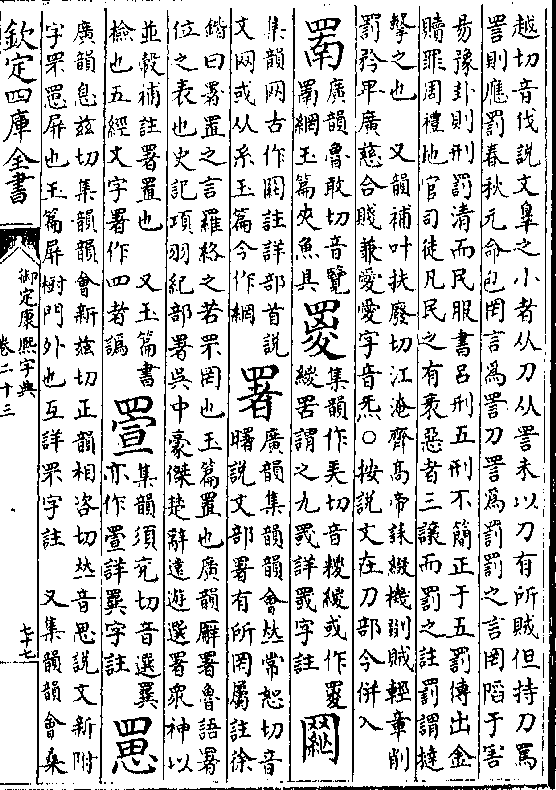 越切音伐說文辠之小者从刀从詈未以刀有所賊但持刀罵
詈則應罰春秋元命包罔言為詈刀詈為罰罰之言罔陷于害
易豫卦則刑罰清而民服書呂刑五刑不簡正于五罰傳出金
贖罪周禮地官司徒凡民之有衺惡者三讓而罰之註罰謂撻
擊之也 又韻補叶扶廢切江淹齊高帝誄綴機削賊輕章削
罰矜卑廣慈合賤兼愛愛字音炁○按說文在刀部今併入
罱
廣韻魯敢切音覽
罱網玉篇夾魚具
集韻作弄切音糉緵或作
緵罟謂之九罭詳罭字註
集韻网古作註詳部首說
文网或从糸玉篇今作網
署
廣韻集韻韻會𠀤常恕切音
曙說文部署有所罔屬註徐
鍇曰署置之言羅絡之若罘罔也玉篇置也廣韻廨署魯語署
位之表也史記項羽紀部署吳中豪傑楚辭遠遊選署衆神以
並轂補註署置也 又玉篇書
檢也五經文字署作四者譌
集韻須兖切音選
亦作詳字註
罳
廣韻息兹切集韻韻會新兹切正韻相咨切𠀤音思說文新附
字罘罳屏也玉篇屏樹門外也互詳罘字註 又集韻韻會桑
欽定四庫全書
御定康熙字典
卷二十三
七十七